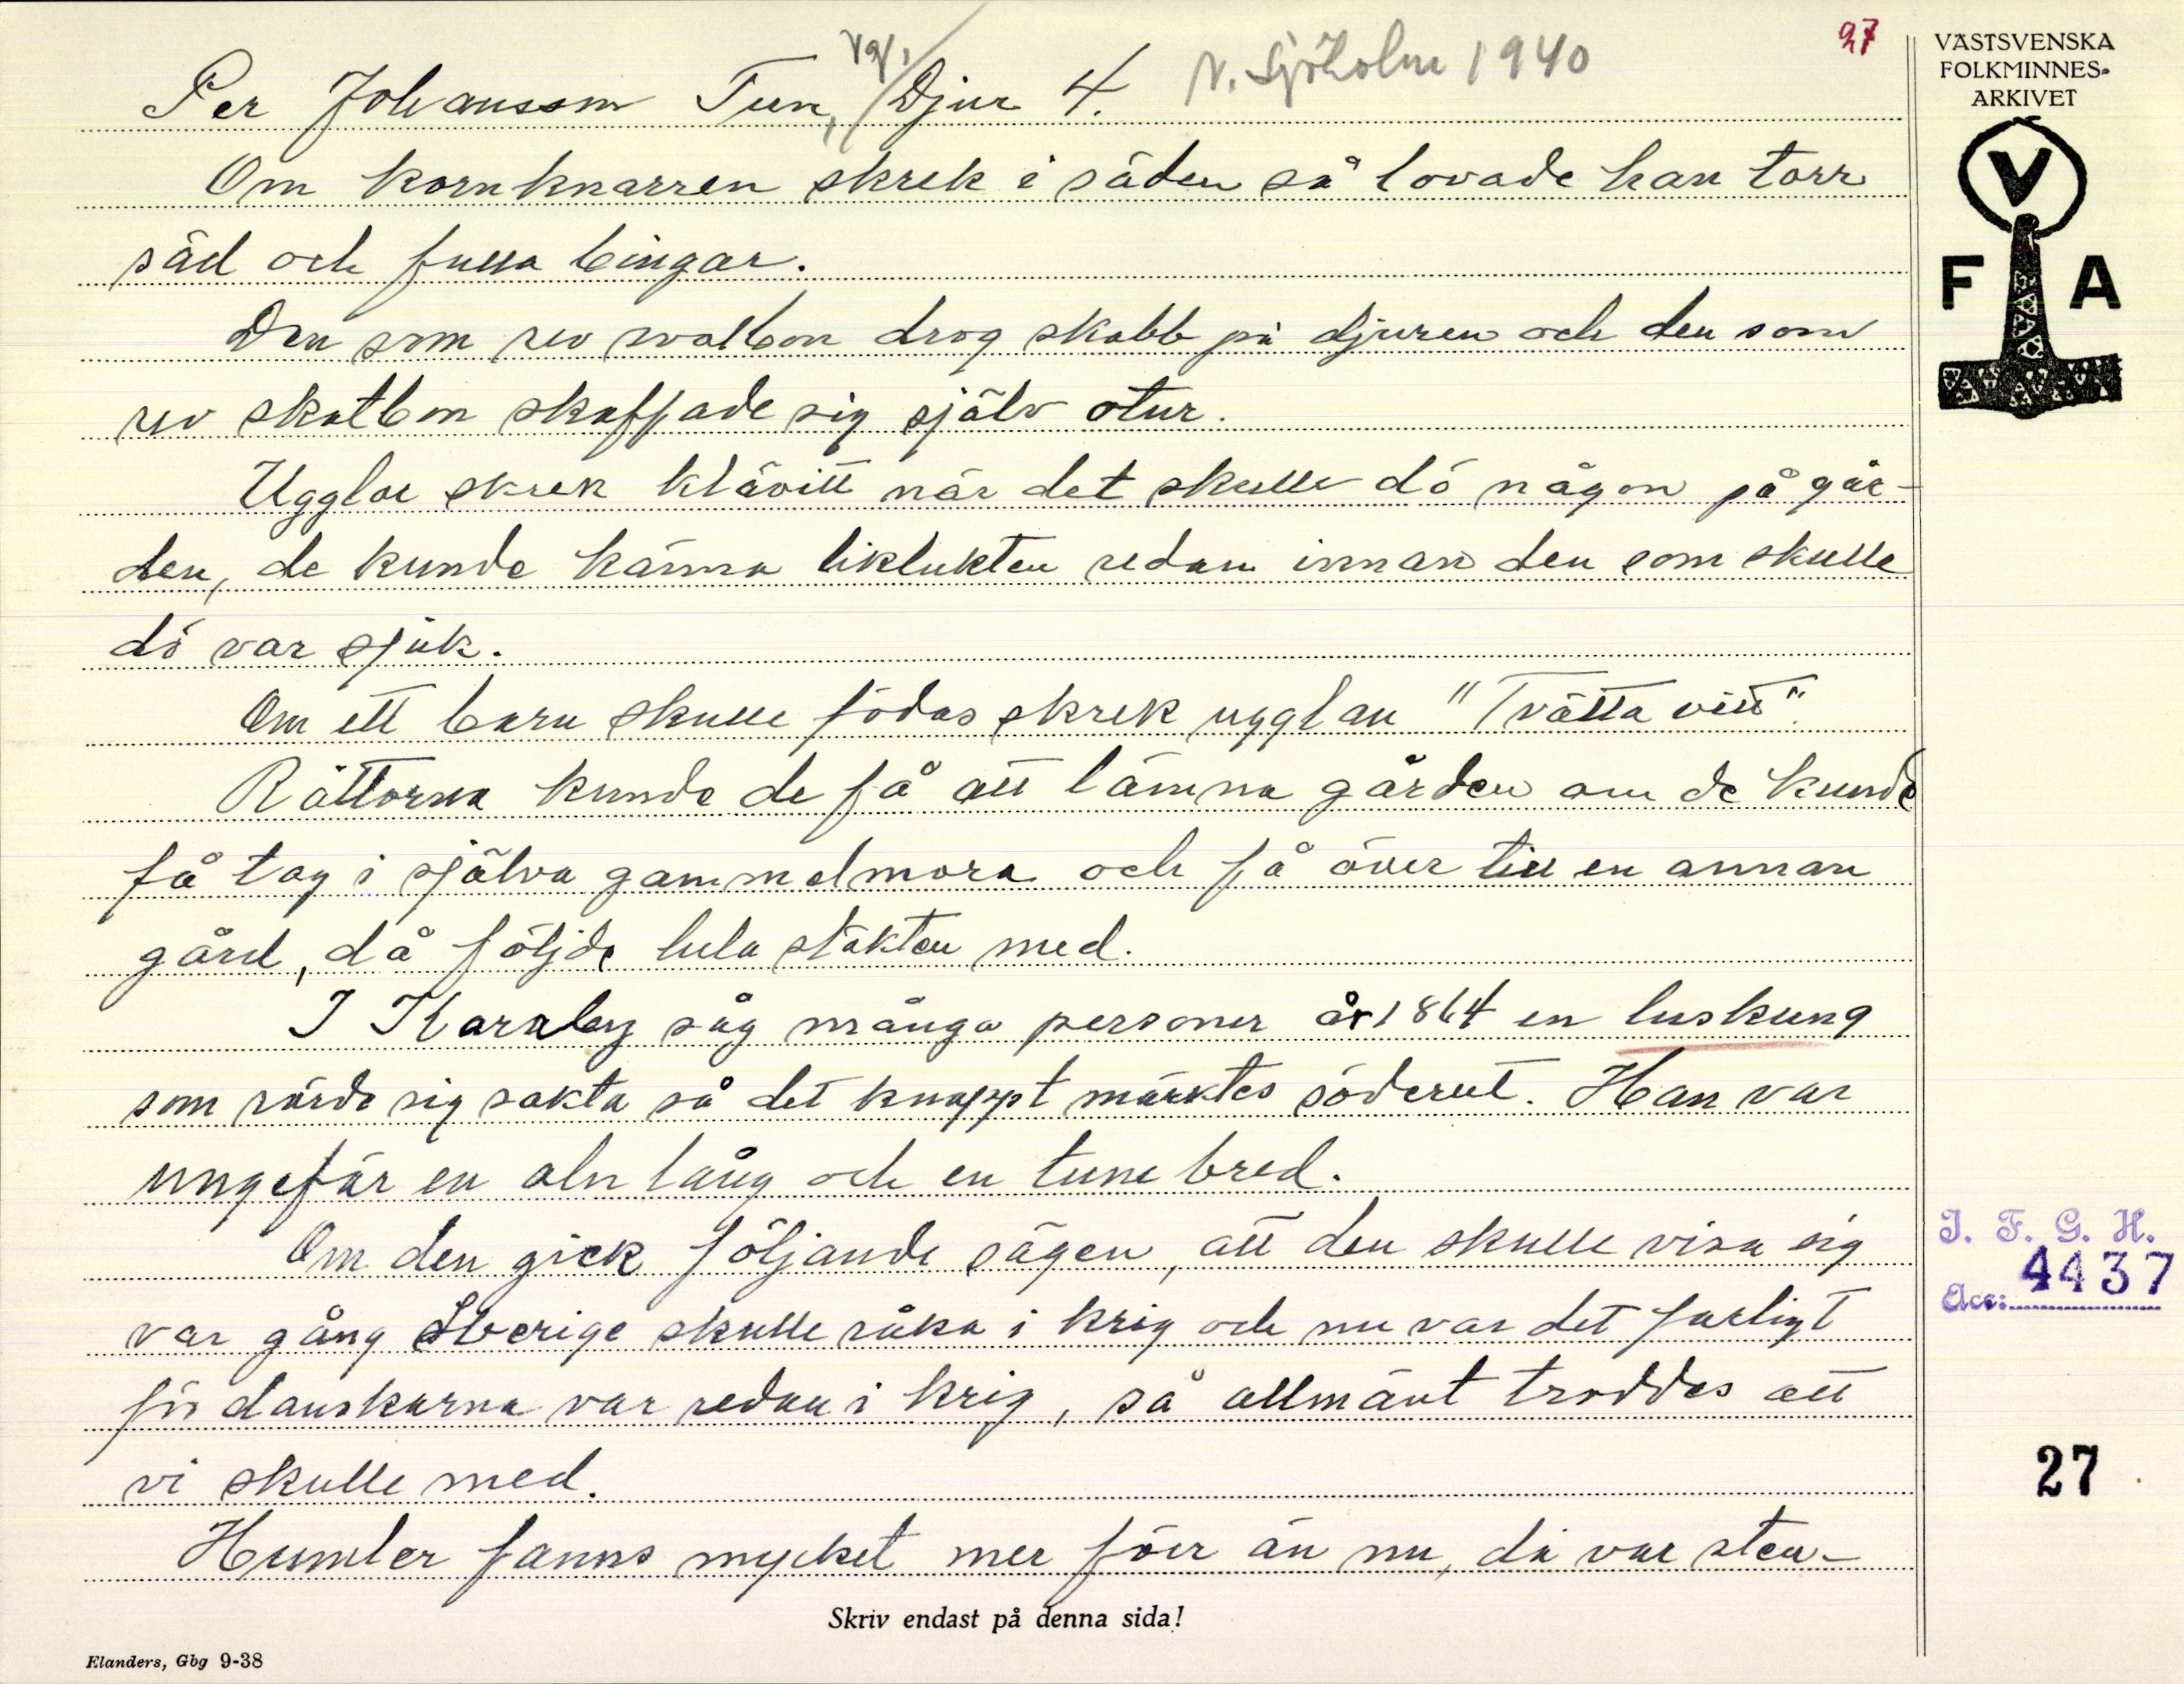 27
Vgl.
Per Johansson Tun, Djur 4. N. Sjöholm 1940
Om kornknarren skrek i säden så lovade han torr
säd och fulla bingar.
Den som rev svalbon drog skabb på djuren och den som
rev skatbon skaffade sig själv otur.
Ugglor skrek klävitt när det skulle dö någon på går-
den, de kunde känna liklukten redan innan den som skulle
dö var sjuk.
Om ett barn skulle födas skrek ugglan "Tvätta vitt".
Råttorna kunde de få att lämna gården om de kunde
få tag i själva gammelmora och få över till en annan
gård, då följde hela släkten med.
I Karaby såg många personer år 1864 en luskung
som rörde sig sakta så det knappt märktes söderut. Han var
ungefär en aln lång och en tum bred.
Om den gick följande sägen, att den skulle visa sig
var gång Sverige skulle råka i krig och nu var det farligt
för danskarna var redan i krig, så allmänt troddes att
vi skulle med.
Humler fanns mycket mer förr än nu, då var sten-
Skriv endast på denna sida!
Elanders, Gbg 9-38
VÄSTSVENSKA
FOLKMINNES-
ARKIVET
V
F A
I. F. G. H.
Acc: 4437
27